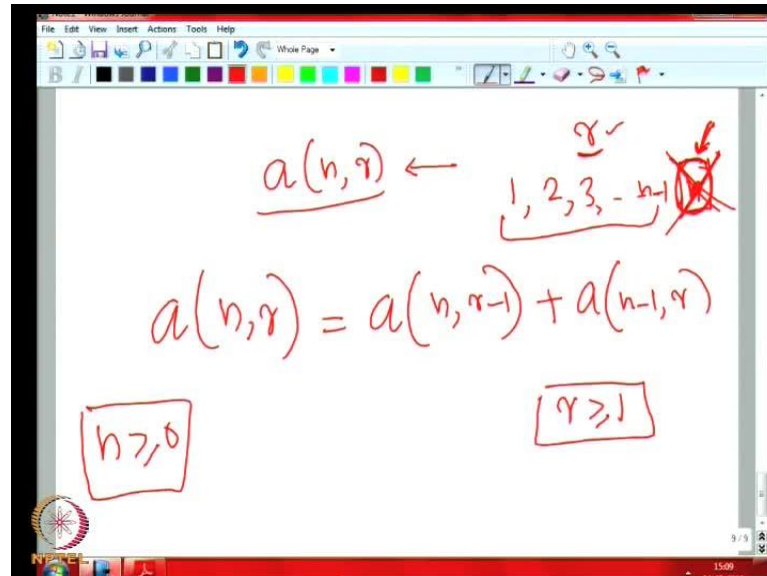 File Edit View Insert Actions Tools Help
Whole Page
B I
r
a(n,r) ← 1, 2, 3, - n-1
a(n,r) = a(n,r-1) + a(n-1,r)
n≥0
r≥1
9/9
NPTEL
15:09